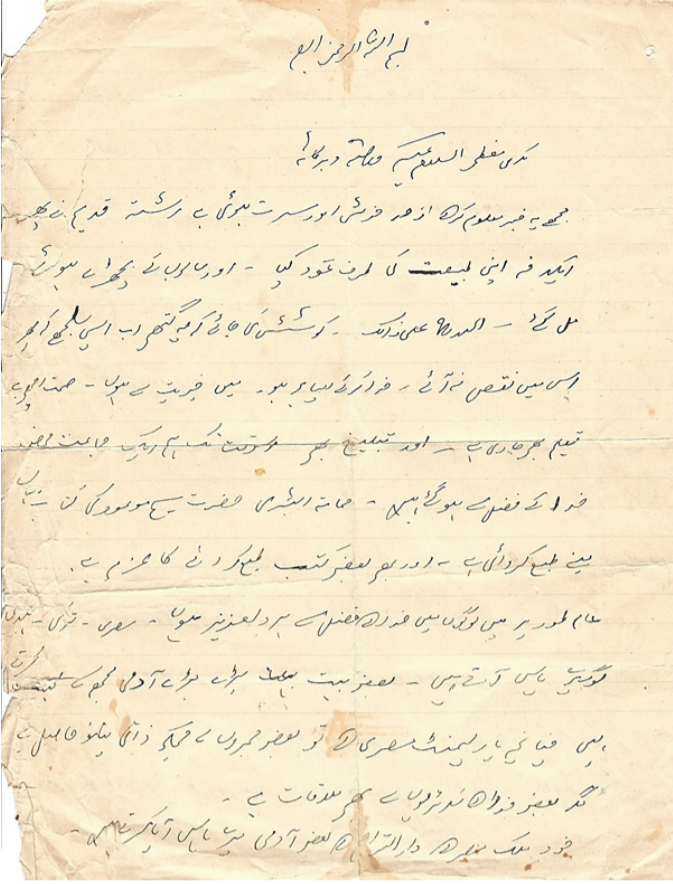 بسم اللہ الرحمن الرحیم
مکرمی معظمی السلام علیکم ورحمۃ وبرکاتہ
مجھے یہ خبر معلوم کرکے ازحد خوشی اور مسرت ہوئی ہے رشتہ قدیم نے پھر
ایک دفعہ اپنی طبیعت کی طرف عود کیا - اور سالوں کے بچھڑے ہوئے
مل گئے - الحمدللہ علی ذالک - کوشش کی جائے کہ یہ گتھی اب ایسی سلجھے کہ پھر
اس میں نقص نہ آئے - خدا کرے ایسا ہی ہو - میں خیریت سے ہوں - صحت اچھی ہے
تعلیم بھی جاری ہے - اور تبلیغ بھی اسوقت تک ایک جماعت
خدا کے فضل سے ہو گئے ہیں - حمامۃ البشری حضرت مسیح موعود کی کتاب
مینے طبع کروائی ہے - اور بھی بعض کتب طبع کروانے کا عزم ہے -
عام طور پر میں لوگوں میں خدا کے فضل سے ہردلعزیز ہوں - مصری - ترکی -
لوگ میرے پاس آتے ہیں - بعض بہت بڑے بڑے آدمی مجھ سے محبت کرتے
ہیں چنانچہ پارلیمنٹ مصری کے تو بعض ممبروں سے مجھکو ذاتی حاصل ہے
بلکہ بعض سے بھی ملاقات ہے -
خود ملک مصر کے بعض آدمی میرے پاس آیا کرتے ہیں -